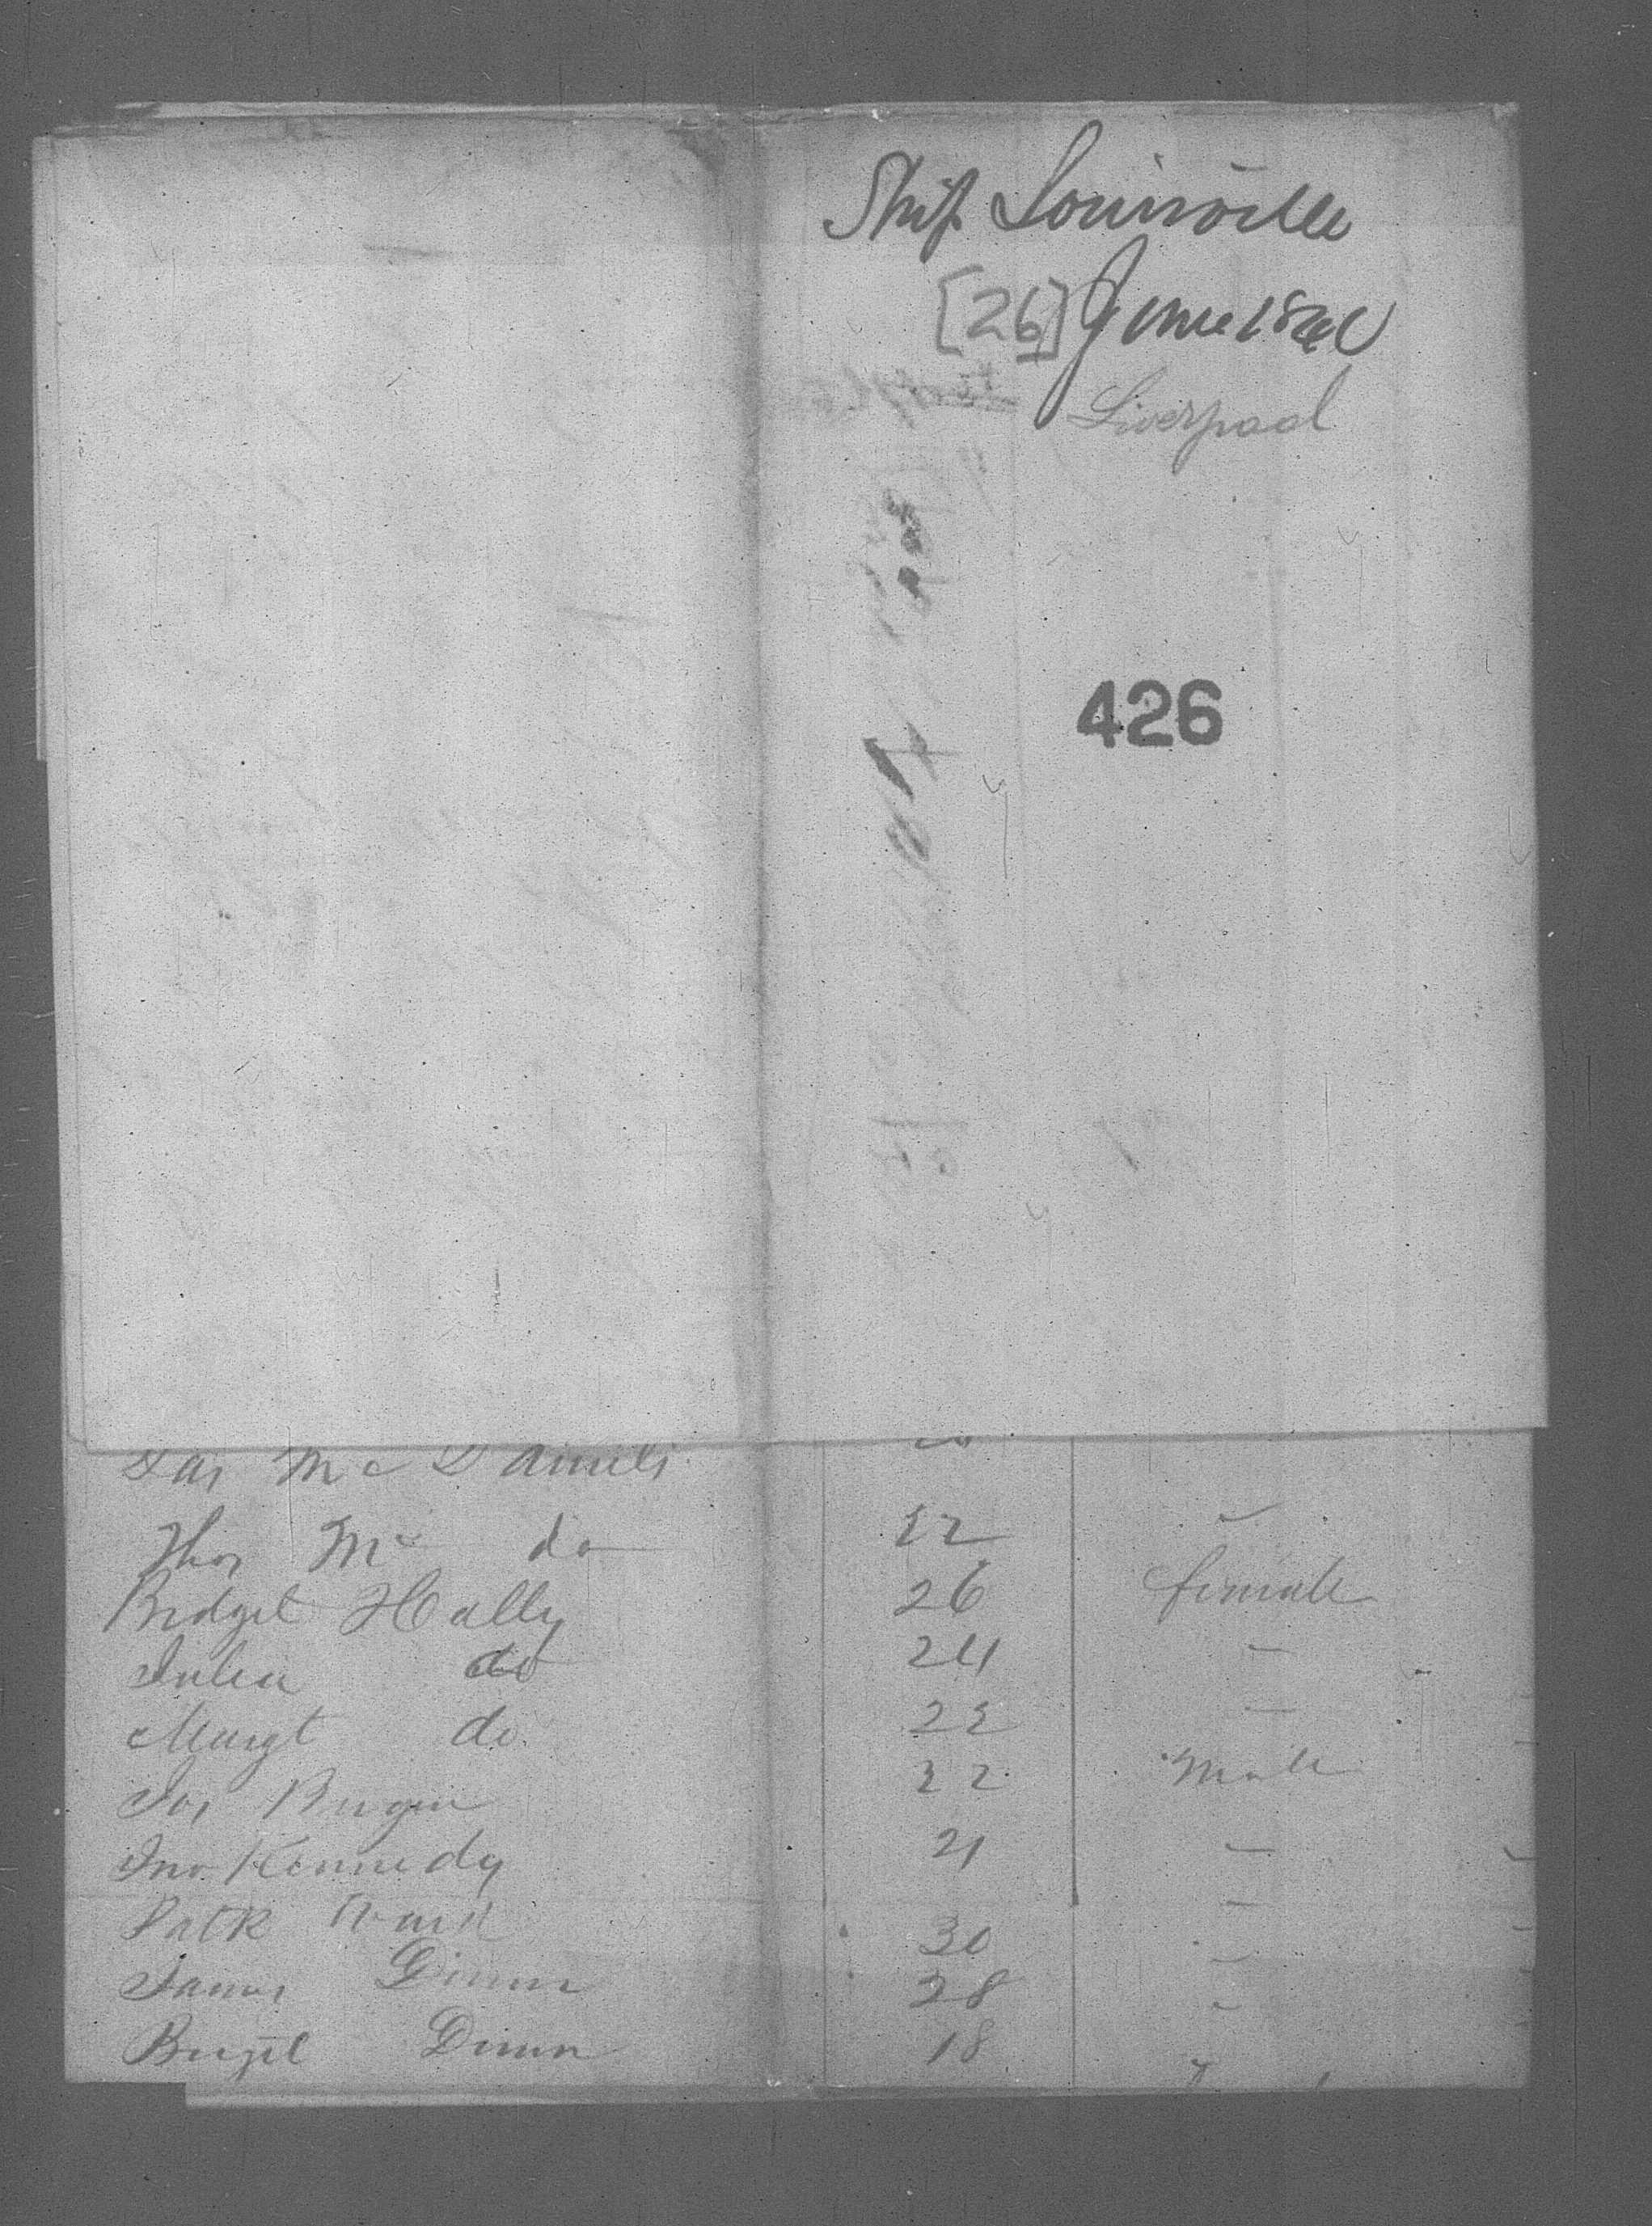 Ship Louisville
[26] June 18
Liverpool
426
Jas Mc Daniels
Thos Mc do 22 -
Bridget Hally 26 female
Julia do 24 -
Margt do 22 -
Jas Bergin 22 male
Jno Kennedy 21 -
Patk Ward 30 -
James Dunn 28 -
Briget Dunn 18